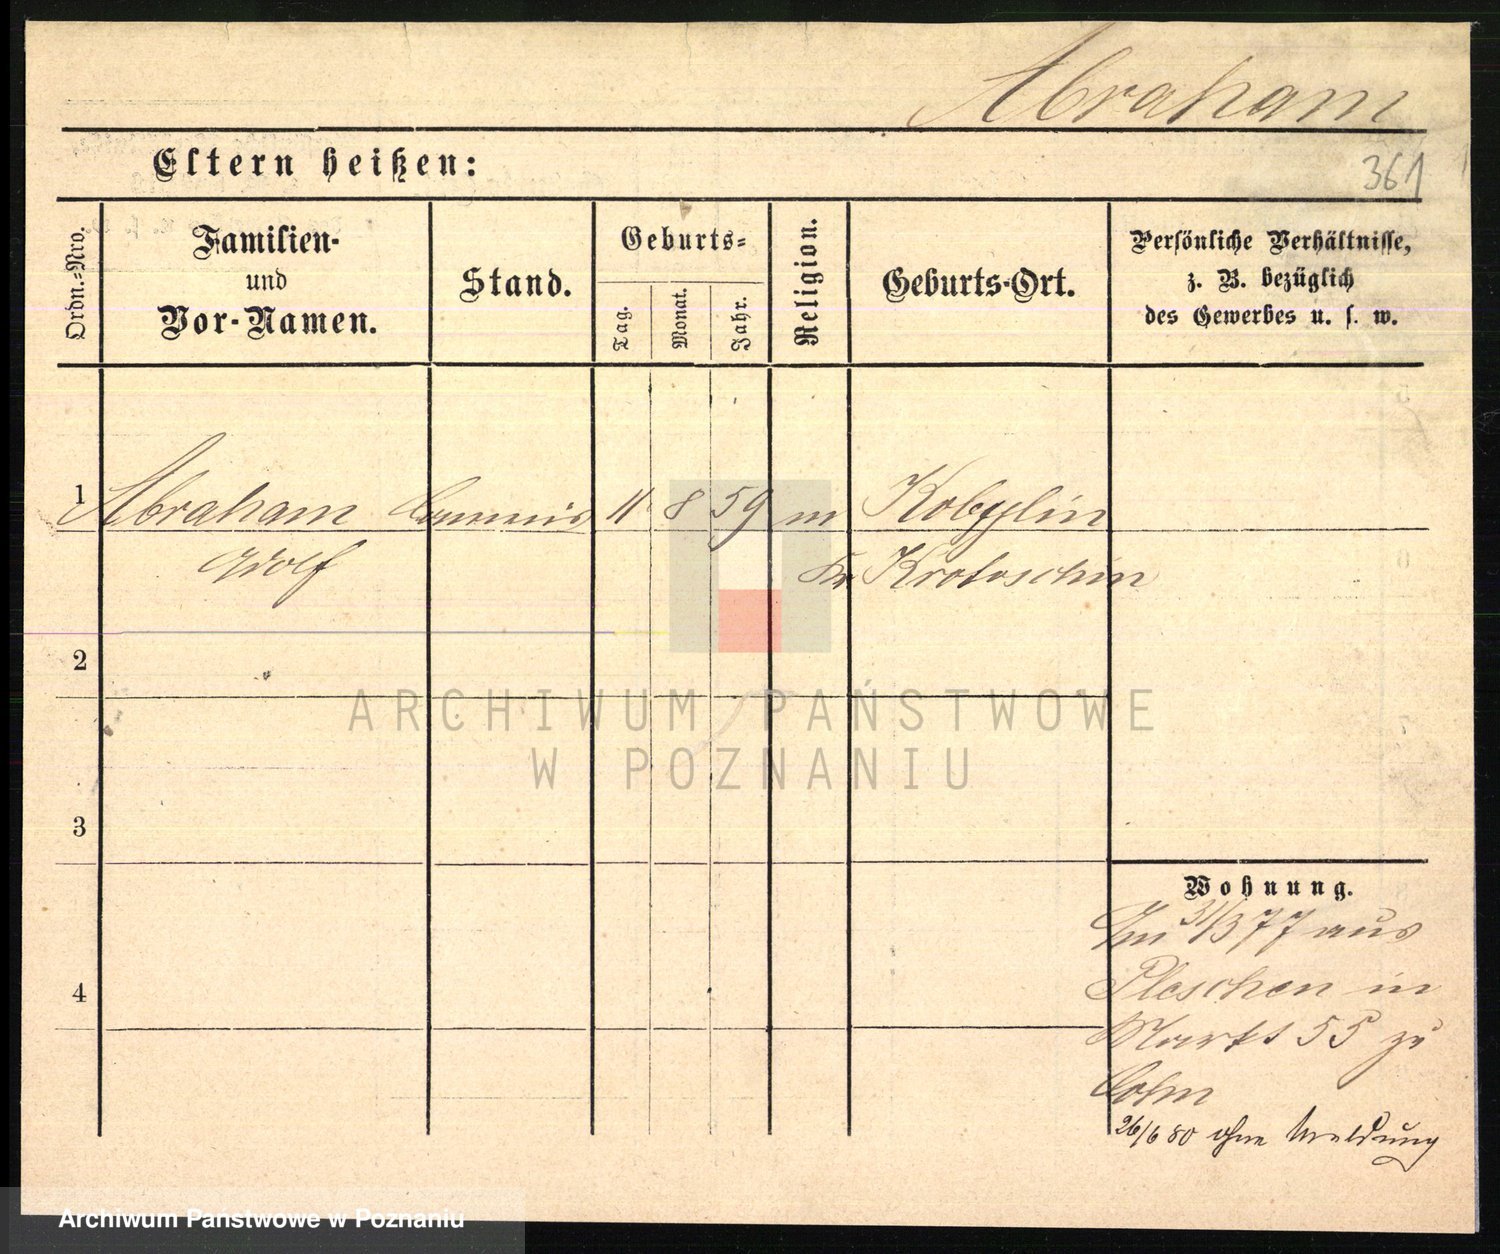 Abraham
361
Eltern heißen:
Ordn.-Nro.
Familien-
und
Vor-Namen.
Stand.
Geburts-
Tag.
Monat.
Jahr.
Religion.
Geburts-Ort.
Persönliche Verhältnisse,
z. B. bezüglich
des Gewerbes u. s. w.
1 Abraham Commis 11 8 59 m Kobylin
Adolf Kr Krotoschin
2
3
4
Wohnung.
31/3 77 aus
Pleschen in
Markt 55 zu
Cohn
26/6 80 ohne Meldung
ARCHIWUM PAŃSTWOWE
W POZNANIU
Archiwum Państwowe w Poznaniu